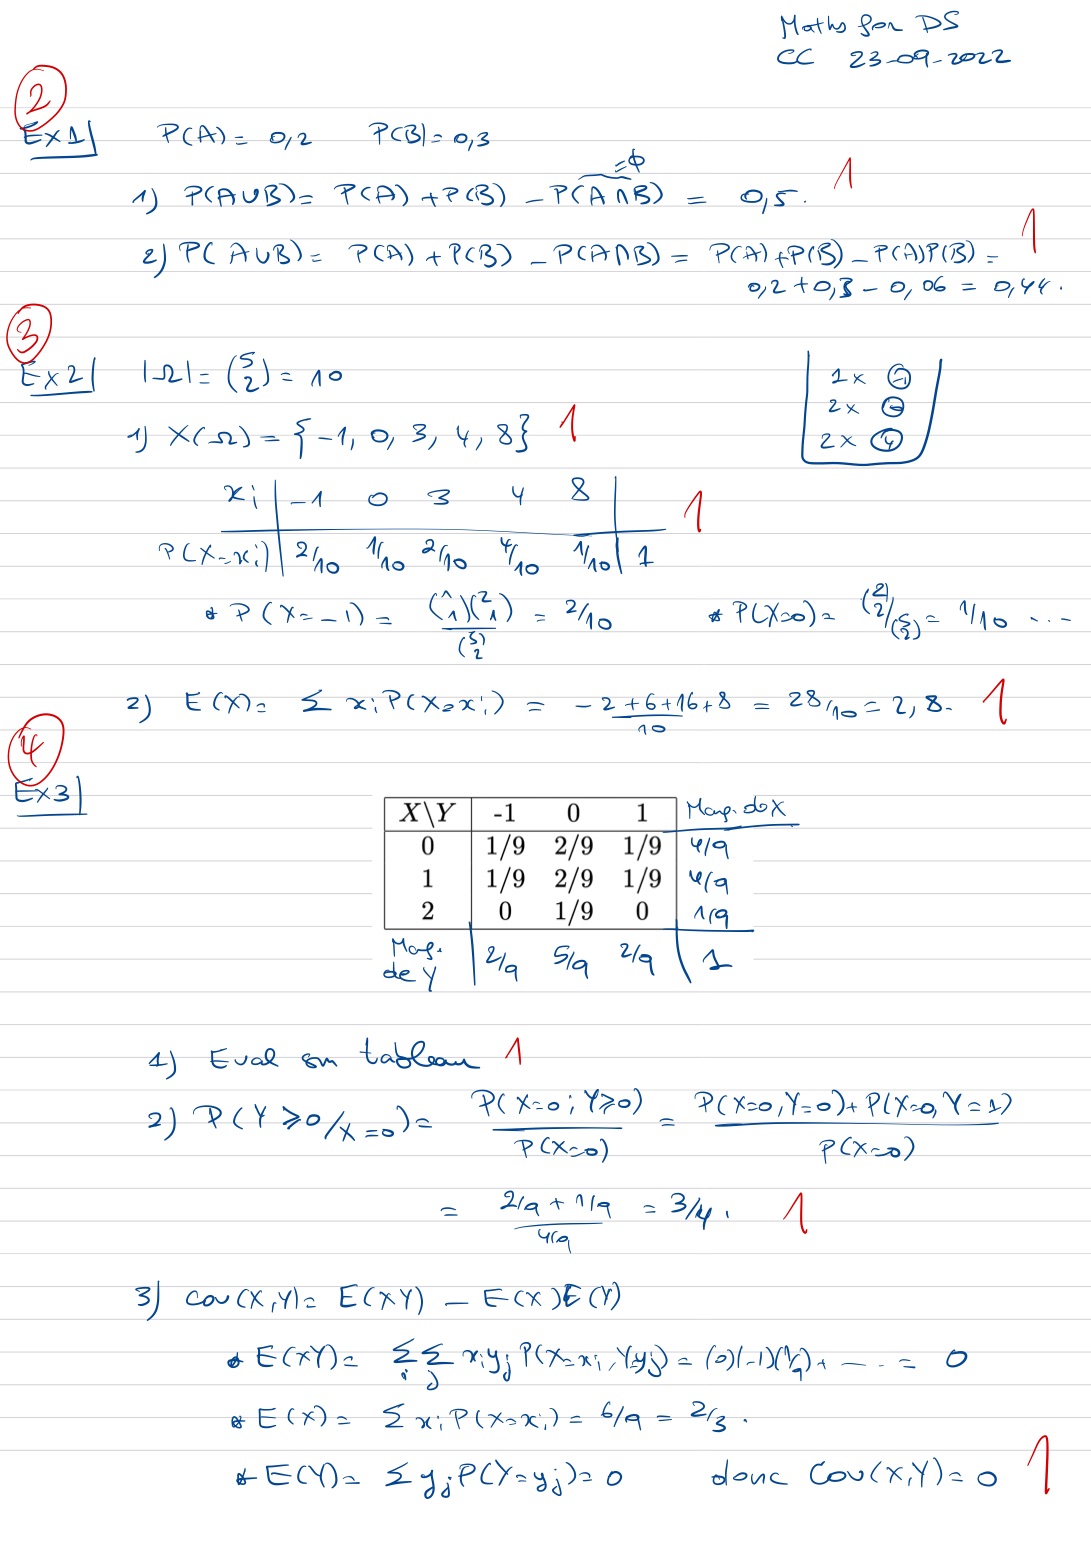 Maths for DS
CC 23-09-2022
②
Ex1| P(A) = 0,2 P(B) = 0,3
=∅
1) P(A∪B) = P(A) + P(B) - P(A∩B) = 0,5. 1
2) P(A∪B) = P(A) + P(B) - P(A∩B) = P(A)+P(B) - P(A)P(B) = 1
0,2 + 0,3 - 0,06 = 0,44.
③
Ex2| |Ω| = (5 2) = 10
1x (-1)
2x (0)
2x (4)
1) X(Ω) = {-1, 0, 3, 4, 8} 1
xi | -1 0 3 4 8 | 1
P(X=xi) | 2/10 1/10 2/10 4/10 1/10 | 1
* P(X=-1) = (1 1)(2 1)/(5 2) = 2/10 * P(X=0) = (2 2)/(5 2) = 1/10 ...
2) E(X) = Σ xi P(X=xi) = (-2+6+16+8)/10 = 28/10 = 2,8. 1
④
Ex3|
X\Y -1 0 1 Marg. de X
0 1/9 2/9 1/9 4/9
1 1/9 2/9 1/9 4/9
2 0 1/9 0 1/9
Marg. de Y 2/9 5/9 2/9 1
1) Eval sur tableau 1
2) P(Y≥0/X=0) = P(X=0; Y≥0)/P(X=0) = (P(X=0,Y=0)+P(X=0,Y=1))/P(X=0)
= (2/9 + 1/9)/(4/9) = 3/4. 1
3) Cov(X,Y) = E(XY) - E(X)E(Y)
* E(XY) = Σi Σj xi yj P(X=xi, Y=yj) = (0)(-1)(1/9) + --- = 0
* E(X) = Σ xi P(X=xi) = 6/9 = 2/3.
* E(Y) = Σ yj P(Y=yj) = 0 donc Cov(X,Y) = 0 1